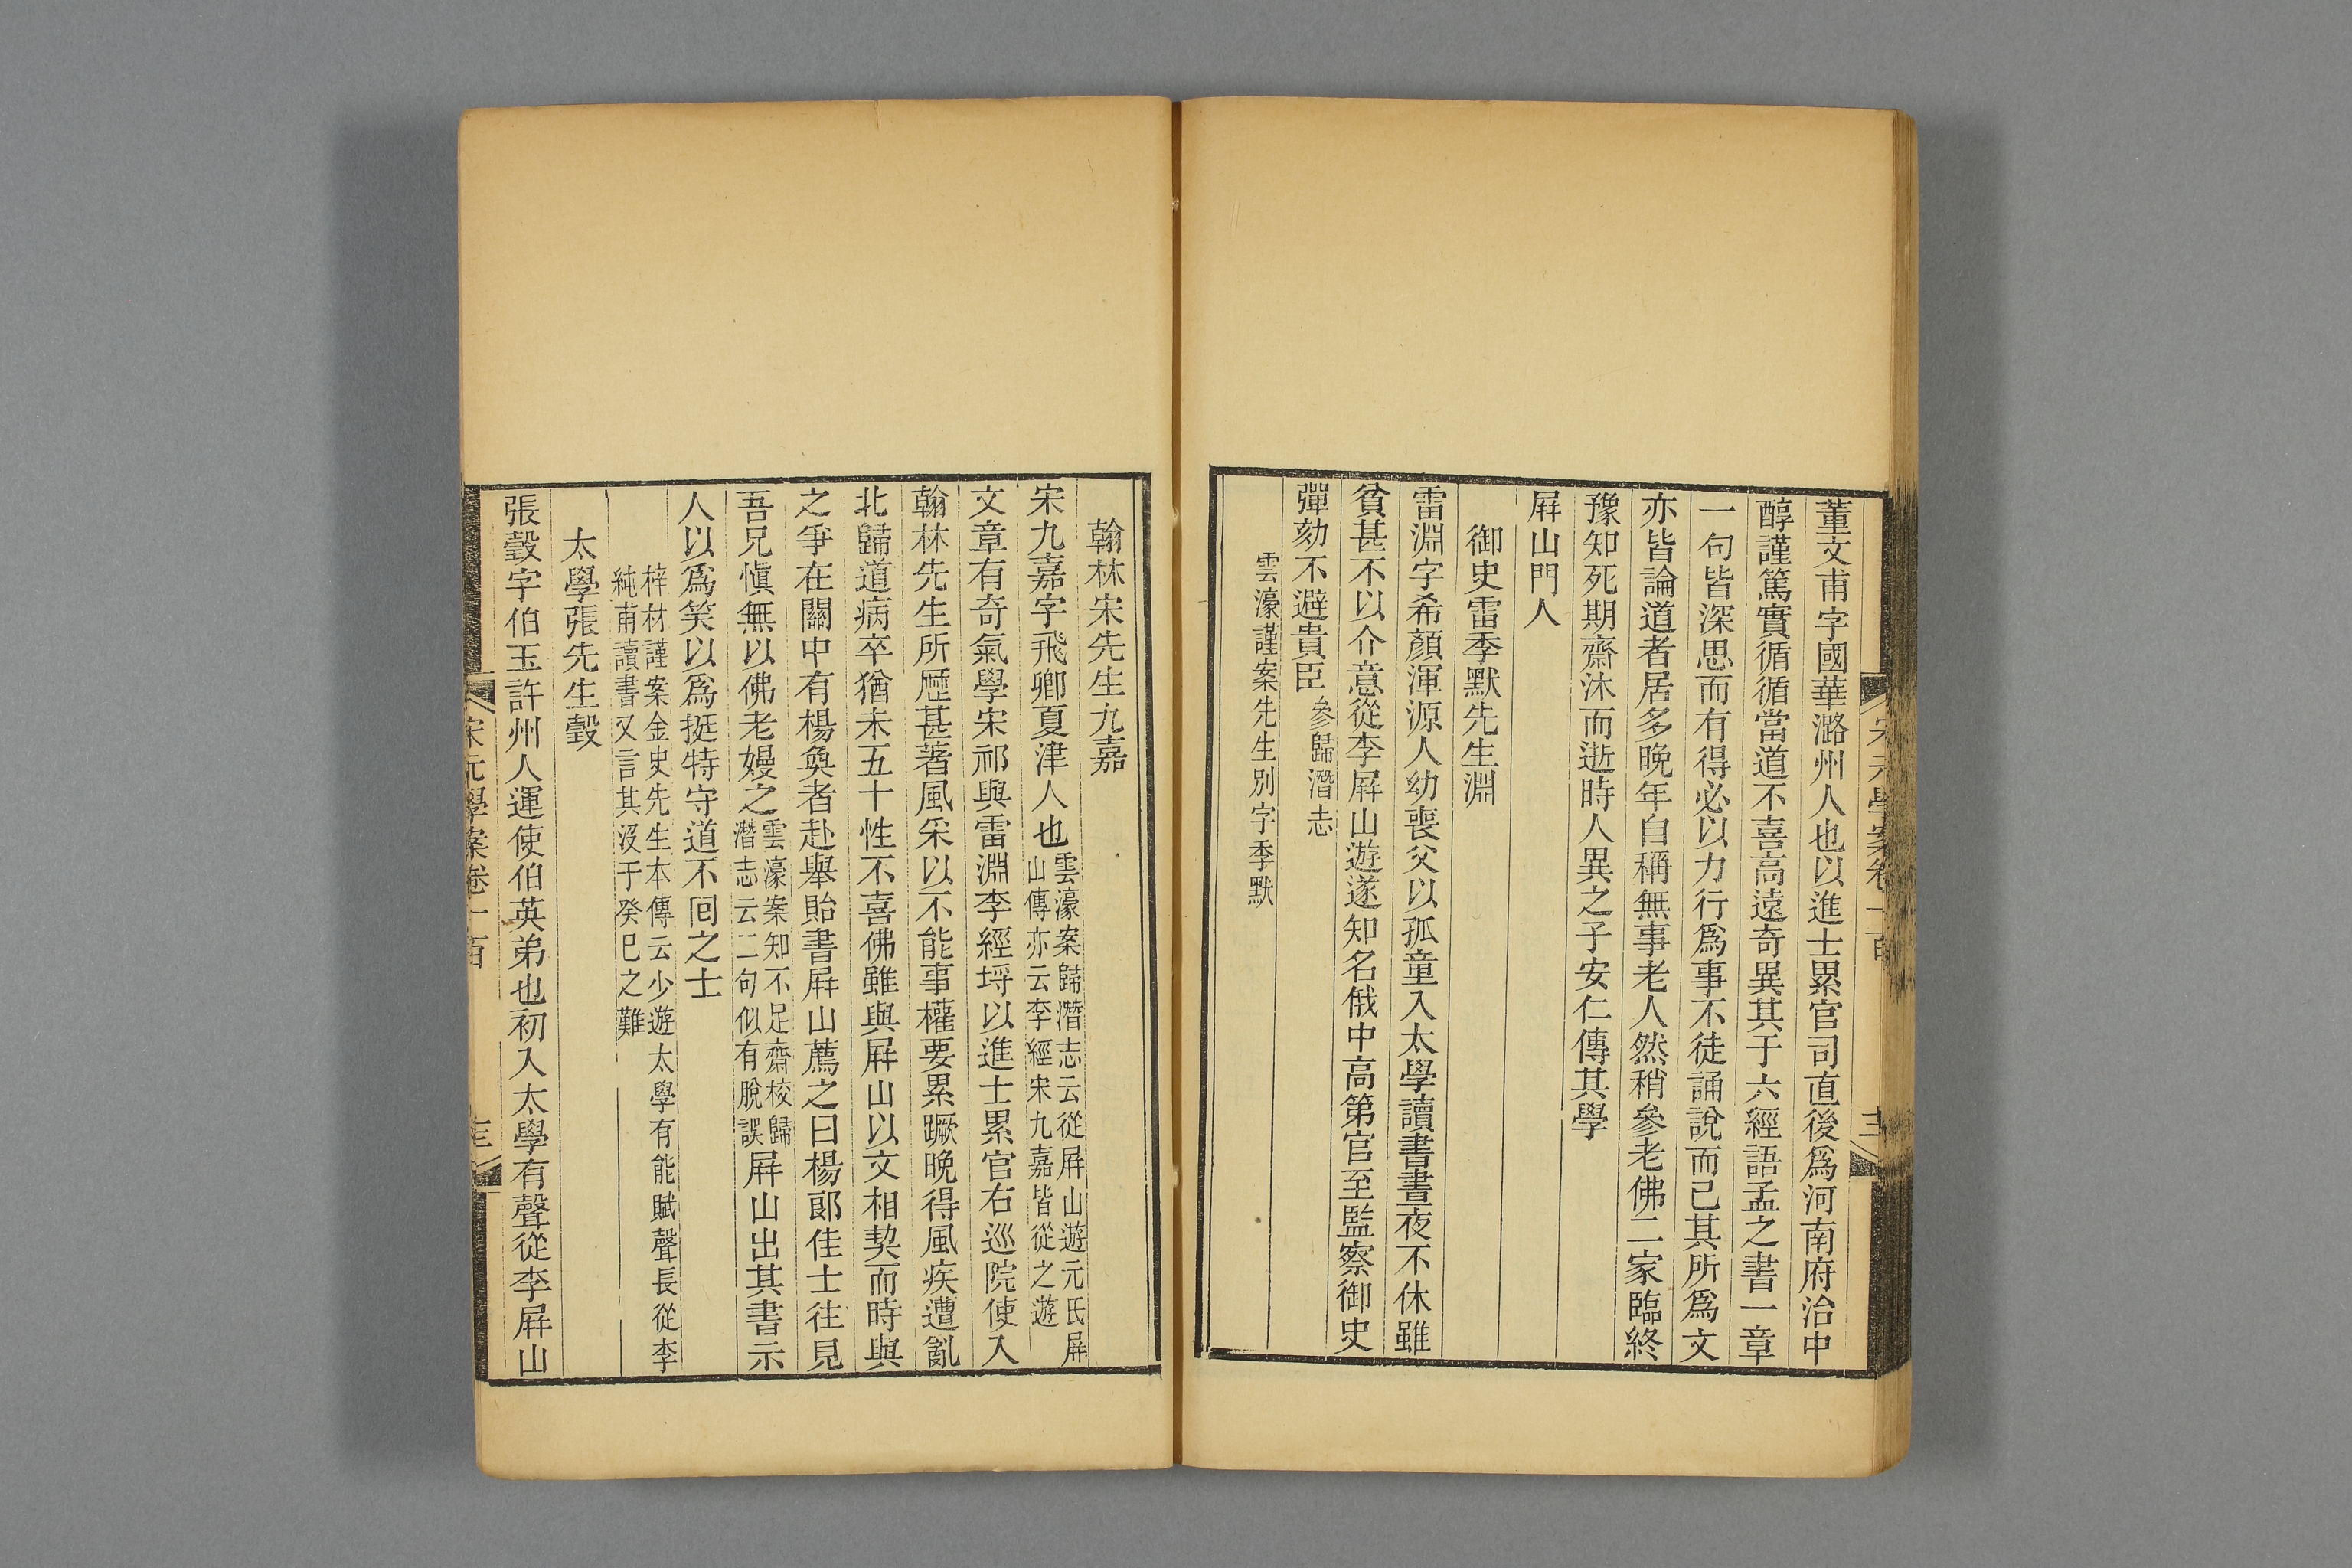 宋元學案卷一百
董文甫字國華潞州人也以進士累官司直後爲河南府治中
醇謹篤實循循當道不喜高遠奇異其于六經語孟之書一章
一句皆深思而有得必以力行爲事不徒誦說而已其所爲文
亦皆論道者居多晚年自稱無事老人然稍參老佛二家臨終
豫知死期齋沐而逝時人異之子安仁傳其學
屛山門人
御史雷季默先生淵
雷淵字希顏渾源人幼喪父以孤童入太學讀書晝夜不休雖
貧甚不以介意從李屛山遊遂知名俄中高第官至監察御史
彈劾不避貴臣參歸潛志
雲濠謹案先生別字季默
翰林宋先生九嘉
宋九嘉字飛卿夏津人也雲濠案歸潛志云從屛山遊元氏屛
山傳亦云李經宋九嘉皆從之遊
文章有奇氣學宋祁與雷淵李經埒以進士累官右巡院使入
翰林先生所歷甚著風采以不能事權要累蹶晚得風疾遭亂
北歸道病卒猶未五十性不喜佛雖與屛山以文相契而時與
之爭在關中有楊奐者赴舉貽書屛山薦之曰楊郎佳士往見
吾兄愼無以佛老嫚之雲濠案知不足齋校歸
潛志云二句似有脫誤屛山出其書示
人以爲笑以爲挺特守道不囘之士
梓材謹案金史先生本傳云少遊太學有能賦聲長從李
純甫讀書又言其沒于癸巳之難
太學張先生瑴
張瑴字伯玉許州人運使伯英弟也初入太學有聲從李屛山
宋元學案卷一百